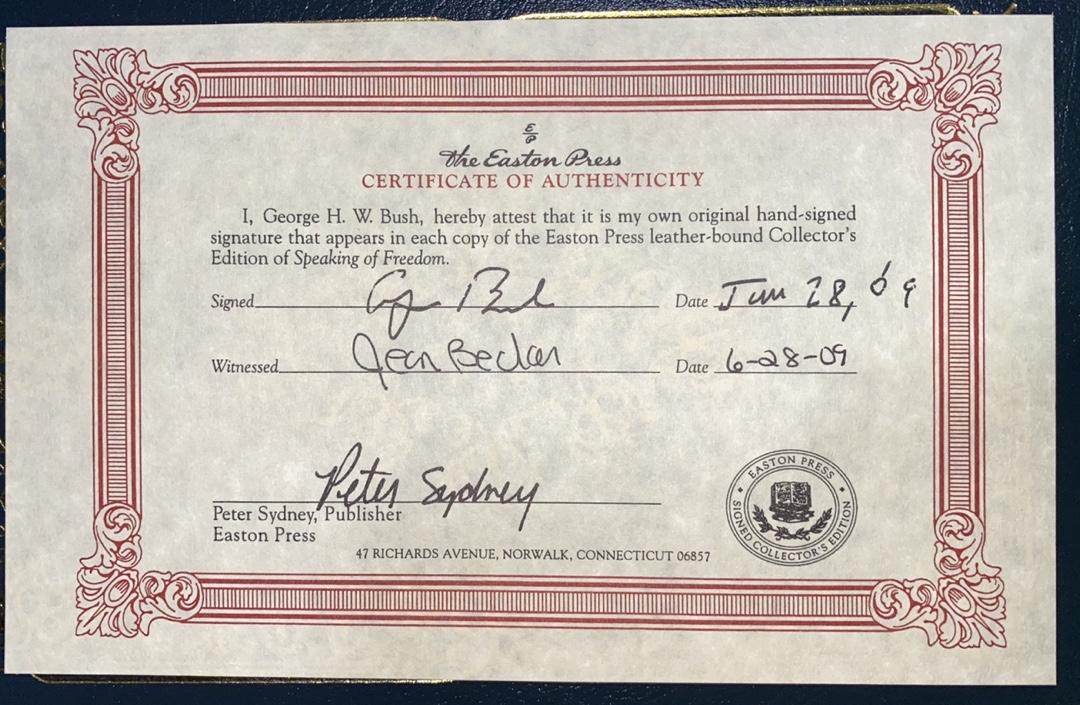 E
P
the Easton Press
CERTIFICATE OF AUTHENTICITY
I, George H. W. Bush, hereby attest that it is my own original hand-signed
signature that appears in each copy of the Easton Press leather-bound Collector's
Edition of Speaking of Freedom.
Signed Date 28, 09
Witnessed Jean Date 6-28-09
Peter Sydney
Peter Sydney, Publisher
Easton Press
47 RICHARDS AVENUE, NORWALK, CONNECTICUT 06857
EASTON PRESS
SIGNED COLLECTOR'S EDITION